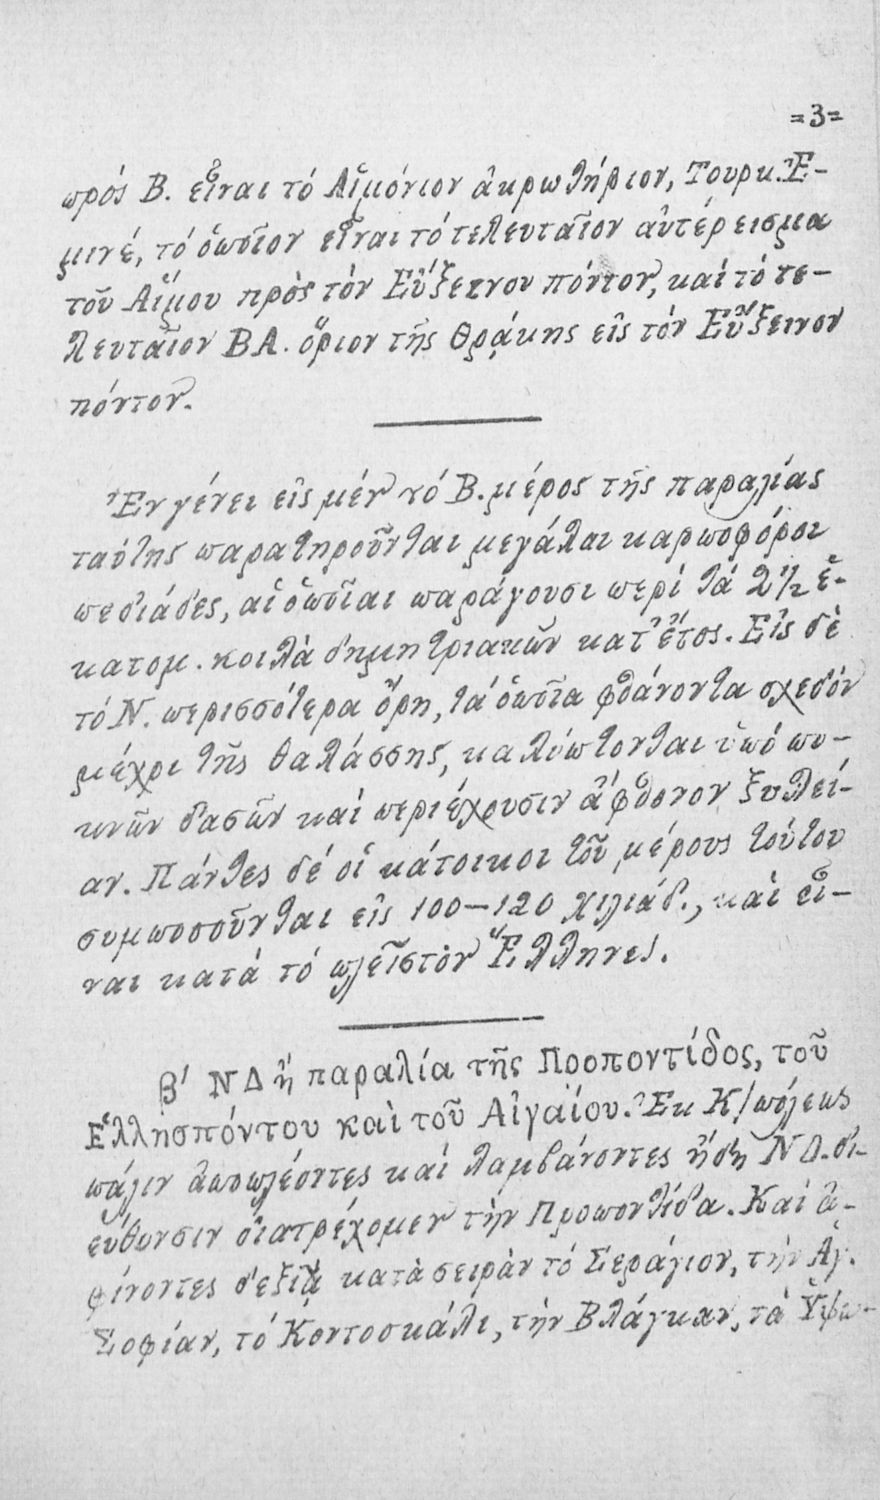 =3=
πρός Β. εἶναι τό Αἱμόνιον ἀκρωτήριον, Τουρκ. Ἐ-
μινέ, τό ὁποῖον εἶναι τό τελευταῖον ἀντέρεισμα
τοῦ Αἵμου πρὸς τόν Εὔξεινον πόντον, καί τό τε-
λευταῖον ΒΑ. ὅριον τῆς Θρᾴκης εἰς τόν Εὔξεινον
πόντον.
Ἐν γένει εἰς μέν τό Β. μέρος τῆς παραλίας
ταύτης παρατηροῦνται μεγάλαι καρποφόροι
πεδιάδες, αἱ ὁποῖαι παράγουσι περί τά 2 1/2 ἑ-
κατομ. κοιλὰ δημητριακῶν κατ' ἔτος. Εἰς δὲ
τό Ν. περισσότερα ὄρη, τά ὁποῖα φθάνοντα σχεδόν
μέχρι τῆς θαλάσσης, καλύπτονται ὑπό πυ-
κνῶν δασῶν καί περιέχουσιν ἄφθονον ξυλεί-
αν. Πάντες δέ οἱ κάτοικοι τοῦ μέρους τούτου
συμποσοῦνται εἰς 100-120 χιλιάδ., καὶ εἶ-
ναι κατά τό πλεῖστὸν Ἕλληνες.
β' ΝΔ ἡ παραλία τῆς Προποντίδος, τοῦ
Ἑλλησπόντου καὶ τοῦ Αἰγαίου. Ἐκ Κ/πόλεως
πάλιν ἀποπλέοντες καί λαμβάνοντες ἤδη ΝΔ. δι-
εύθυνσιν διατρέχομεν τὴν Προποντίδα. Καί ἀ-
φίνοντες δεξιᾷ κατὰ σειρὰν τό Σεράγιον, τήν Ἁγ.
Σοφίαν, τό Κοντοσκάλι, τήν Βλάγκαν, τὰ Ὑψω-